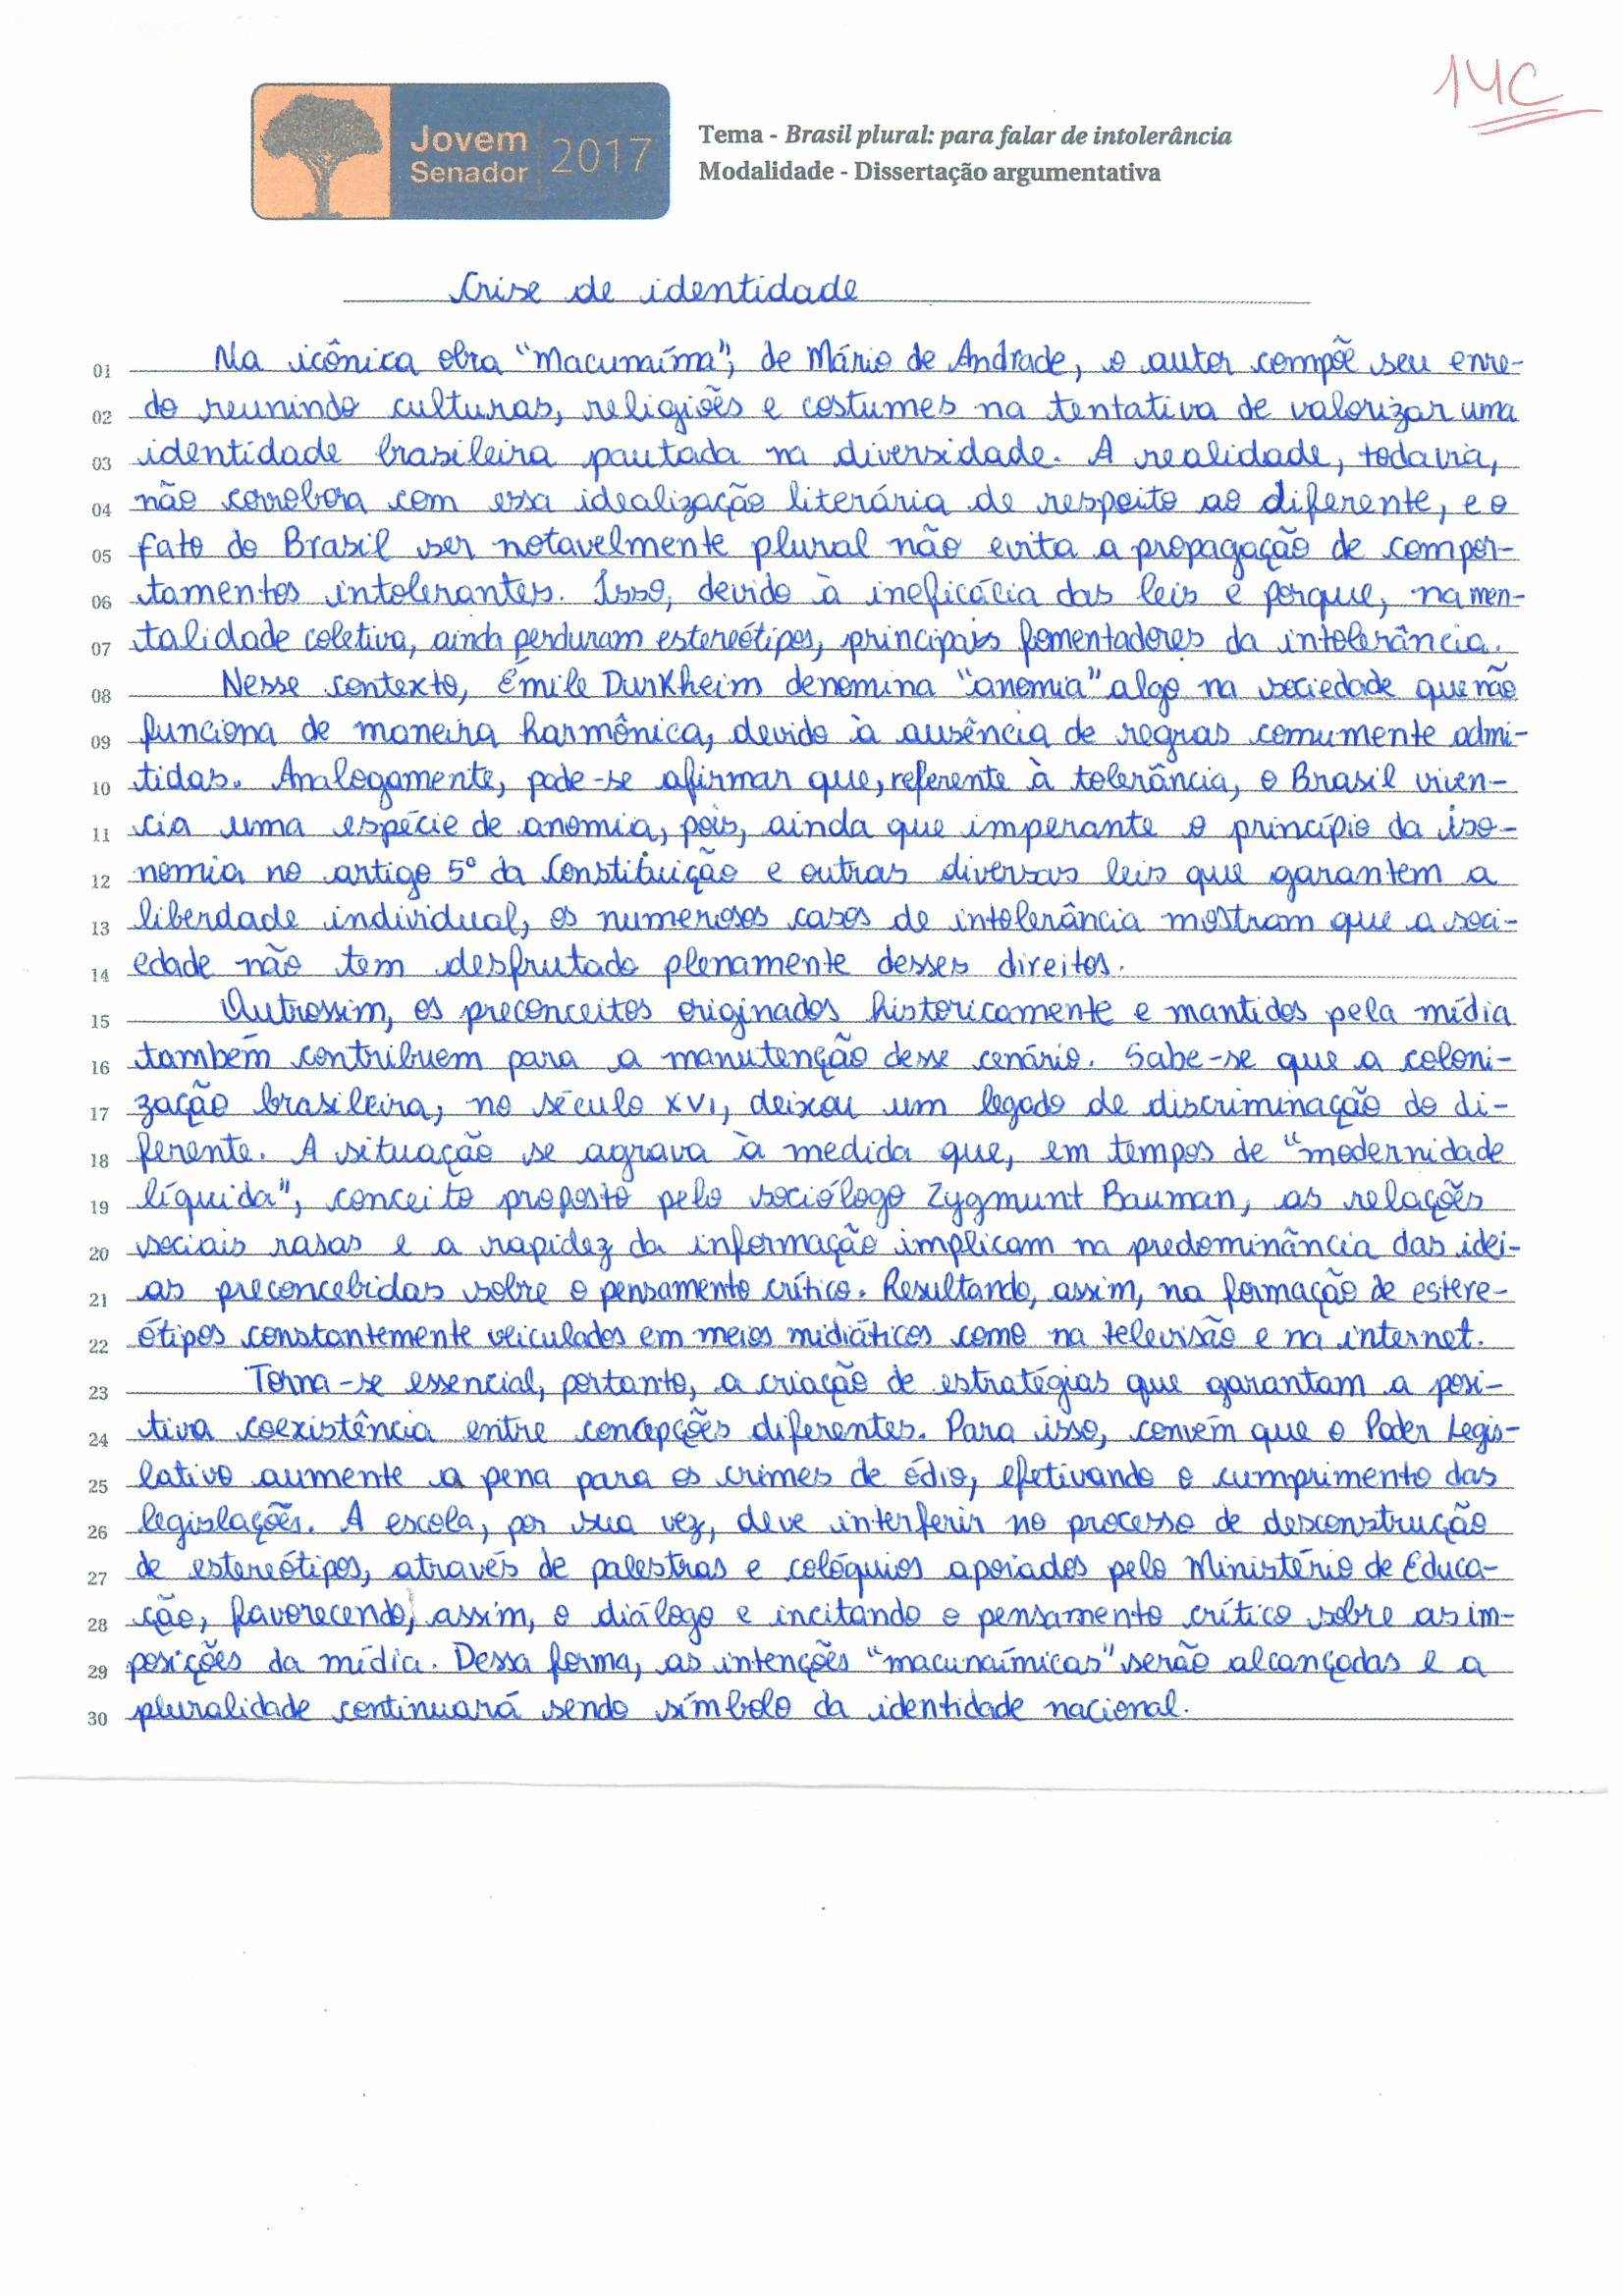 14C
Jovem
Senador
2017
Tema - Brasil plural: para falar de intolerância
Modalidade - Dissertação argumentativa
Crise de identidade
01 Na icônica obra "Macunaíma", de Mário de Andrade, o autor compõe seu enre-
02 do reunindo culturas, religiões e costumes na tentativa de valorizar uma
03 identidade brasileira pautada na diversidade. A realidade, todavia,
04 não corrobora com essa idealização literária de respeito ao diferente, e o
05 fato do Brasil ser notavelmente plural não evita a propagação de compor-
06 tamentos intolerantes. Isso, devido à ineficácia das leis e porque, na men-
07 talidade coletiva, ainda perduram estereótipos, principais fomentadores da intolerância.
08 Nesse contexto, Émile Durkheim denomina "anomia" algo na sociedade que não
09 funciona de maneira harmônica, devido à ausência de regras comumente admi-
10 tidas. Analogamente, pode-se afirmar que, referente à tolerância, o Brasil viven-
11 cia uma espécie de anomia, pois, ainda que imperante o princípio da iso-
12 nomia no artigo 5º da Constituição e outras diversas leis que garantem a
13 liberdade individual, os numerosos casos de intolerância mostram que a soci-
14 edade não tem desfrutado plenamente desses direitos.
15 Outrossim, os preconceitos originados historicamente e mantidos pela mídia
16 também contribuem para a manutenção desse cenário. Sabe-se que a coloni-
17 zação brasileira, no século XVI, deixou um legado de discriminação do di-
18 ferente. A situação se agrava à medida que, em tempos de "modernidade
19 líquida", conceito proposto pelo sociólogo Zygmunt Bauman, as relações
20 sociais rasas e a rapidez da informação implicam na predominância das idei-
21 as preconcebidas sobre o pensamento crítico. Resultando, assim, na formação de estere-
22 ótipos constantemente veiculados em meios midiáticos como na televisão e na internet.
23 Torna-se essencial, portanto, a criação de estratégias que garantam a posi-
24 tiva coexistência entre concepções diferentes. Para isso, convém que o Poder Legis-
25 lativo aumente a pena para os crimes de ódio, efetivando o cumprimento das
26 legislações. A escola, por sua vez, deve interferir no processo de desconstrução
27 de estereótipos, através de palestras e colóquios apoiados pelo Ministério de Educa-
28 ção, favorecendo, assim, o diálogo e incitando o pensamento crítico sobre as im-
29 posições da mídia. Dessa forma, as intenções "macunaímicas" serão alcançadas e a
30 pluralidade continuará sendo símbolo da identidade nacional.